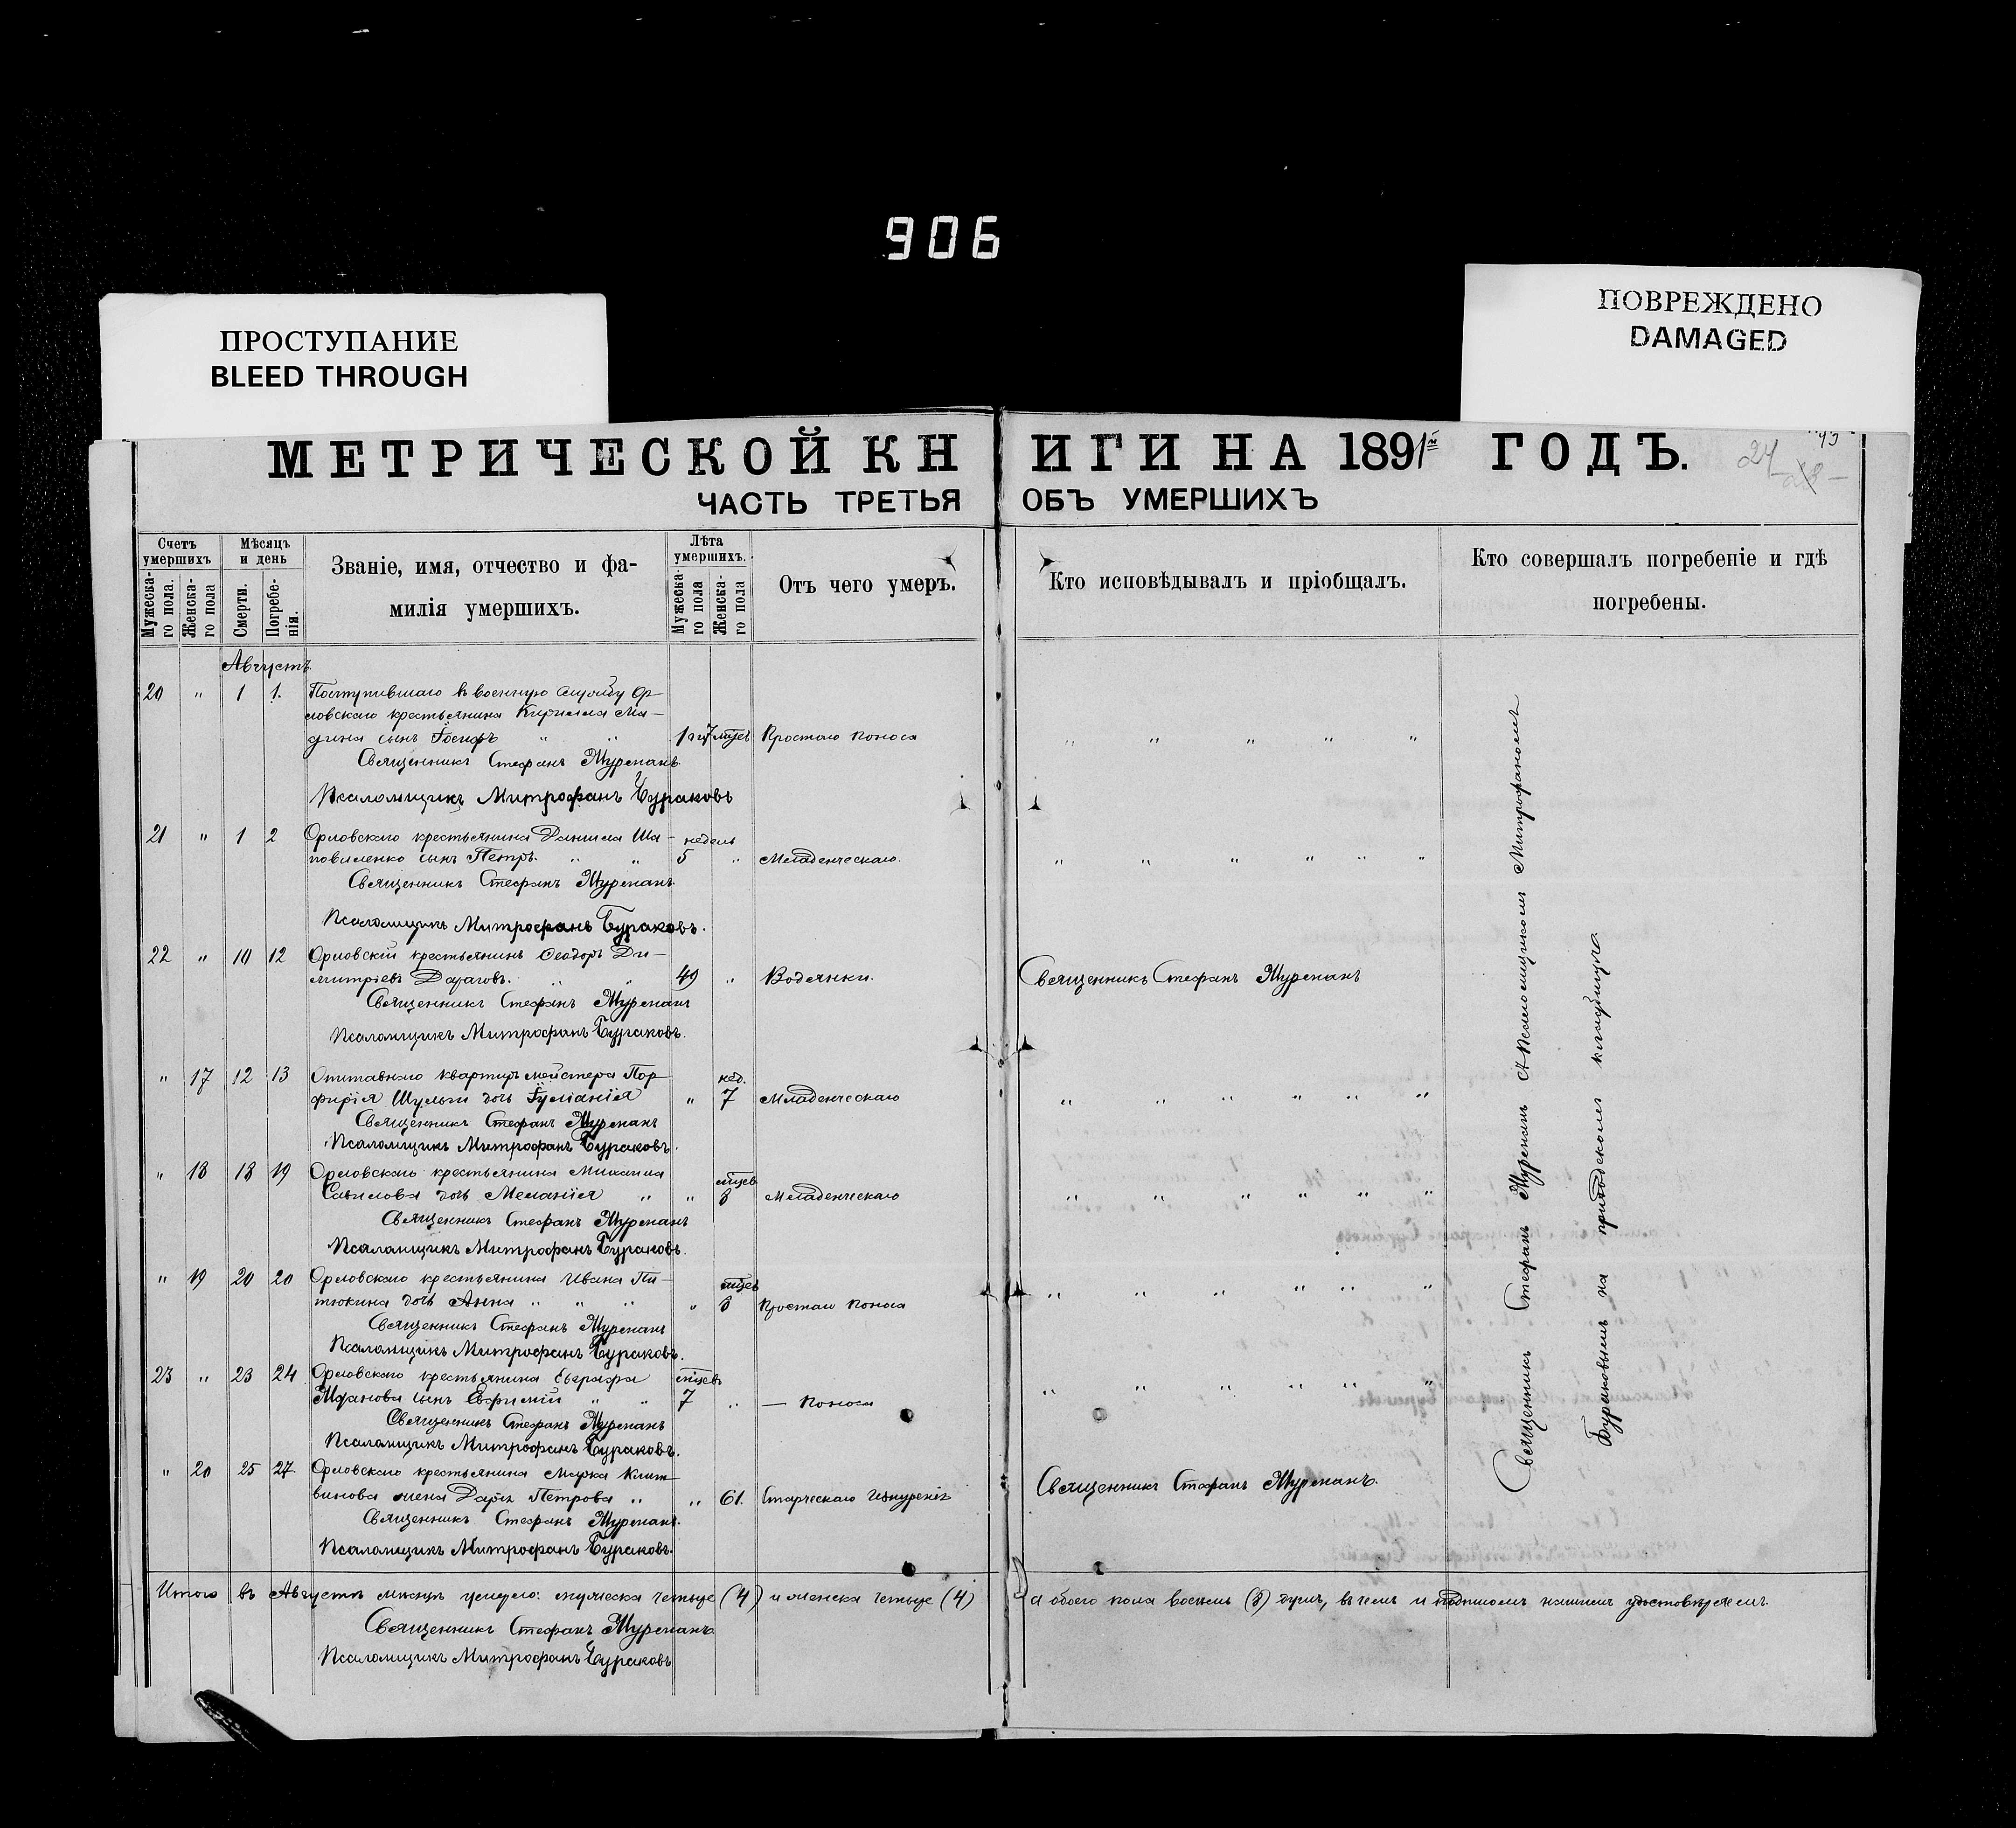 906
ПРОСТУПАНИЕ
BLEED THROUGH
ПОВРЕЖДЕНО
DAMAGED
МЕТРИЧЕСКОЙ КНИГИ НА 1891 ГОДЪ.
24
ЧАСТЬ ТРЕТЬЯ ОБЪ УМЕРШИХЪ
Счетъ умершихъ
Мужеска-го пола.
Женска-го пола
Мѣсяцъ и день
Смерти.
Погребе-нія.
Званіе, имя, отчество и фа-
милія умершихъ.
Лѣта умершихъ.
Мужеска-го пола
Женска-го пола
Отъ чего умеръ.
Кто исповѣдывалъ и пріобщалъ.
Кто совершалъ погребеніе и гдѣ
погребены.
Августъ
20 " 1 1. Поступившаго въ военную службу Ор-
ловскаго крестьянина Кирилла
сынъ Іосифъ " " 1 и 7 мцев Простаго поноса " " " " "
Священникъ Стефанъ Мурсманъ
Псаломщикъ Митрофанъ Бураковъ
21 " 1 2 Орловскаго крестьянина Даниила Ша- недель
повиленко сынъ Петръ. " " 5 " Младенческаго. " " " " " "
Священникъ Стефанъ Мурсманъ
Псаломщикъ Митрофанъ Бураковъ.
22 " 10 12 Орловскій крестьянинъ Ѳеодоръ Ди-
митріевъ . " " 49 " Водянки. Священникъ Стефанъ Мурсманъ
Священникъ Стефанъ Мурсманъ
Псаломщикъ Митрофанъ Бураковъ.
" 17 12 13 квартирмейстера Пор- нед.
фирія Шульги дочь Іуліанія " 7 Младенческаго " " " " " "
Священникъ Стефанъ Мурсманъ
Псаломщикъ Митрофанъ Бураковъ.
" 18 18 19 Орловскаго крестьянина Михаила мцев
Савилова дочь Меланія " " 8 Младенческаго " " " " " "
Священникъ Стефанъ Мурсманъ
Псаломщикъ Митрофанъ Бураковъ.
" 19 20 20 Орловскаго крестьянина Ивана Пи- мцев
тюкина дочь Анна " " " " 8 Простаго поноса " " " " " "
Священникъ Стефанъ Мурсманъ
Псаломщикъ Митрофанъ Бураковъ.
23 " 23 24 Орловскаго крестьянина Евграфа мцевъ
Жданова сынъ Евфимій " " 7 " — поноса " " " " " "
Священникъ Стефанъ Мурсманъ
Псаломщикъ Митрофанъ Бураковъ.
" 20 25 27 Орловскаго крестьянина Марка
жена Дарія Петрова " " 61. Старческаго изнуренія Священникъ Стефанъ Мурсманъ.
Священникъ Стефанъ Мурсманъ.
Псаломщикъ Митрофанъ Бураковъ.
Священникъ Стефанъ Мурсманъ съ Псаломщикомъ Митрофаномъ
Бураковымъ на приходскомъ кладбищѣ.
Итого въ Августѣ мѣсяцѣ умерло: мужеска четыре (4) и женска четыре (4) а обоего пола восемь (8) душъ, въ чемъ и подписомъ нашимъ удостовѣряемъ.
Священникъ Стефанъ Мурсманъ
Псаломщикъ Митрофанъ Бураковъ